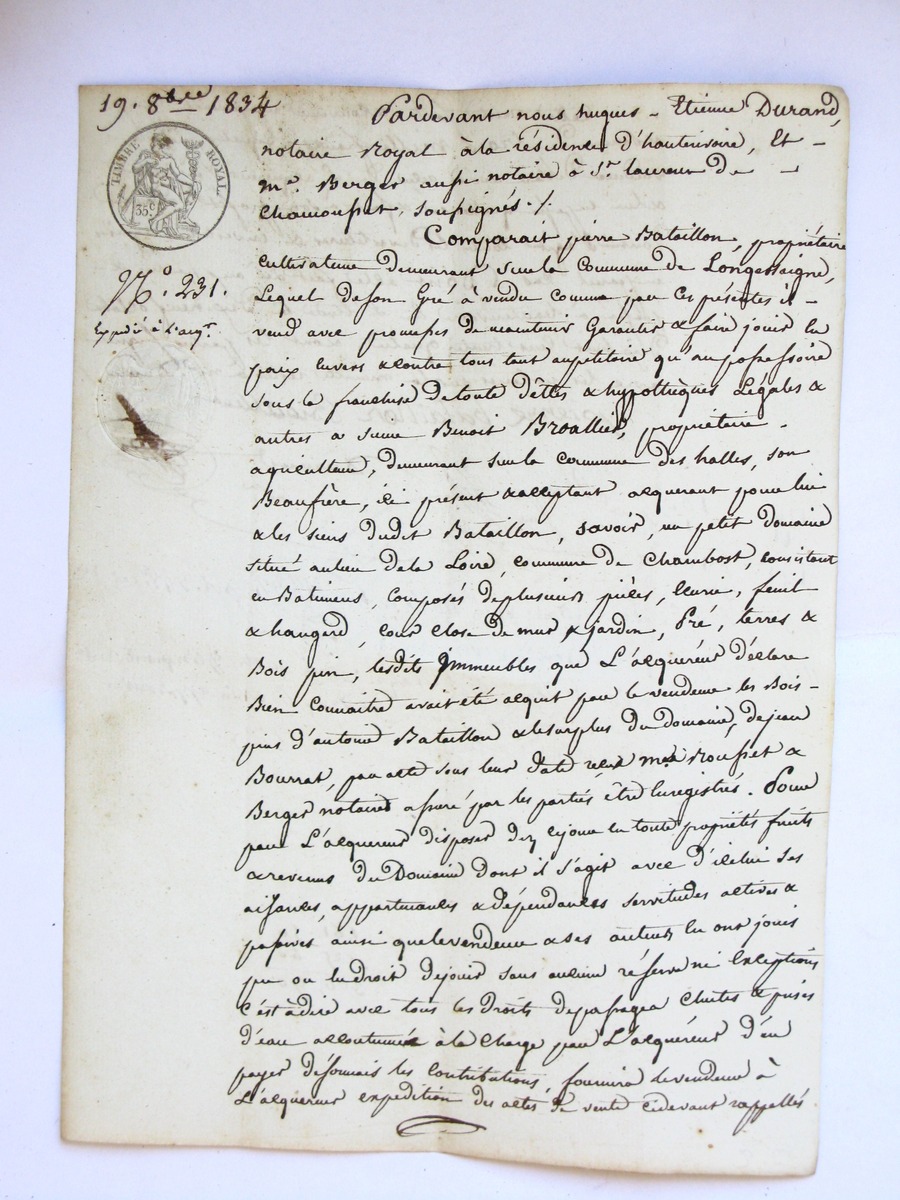 19. 8bre 1834
TIMBRE ROYAL.
35c
No. 231.
Expédié à l'acqr.
Pardevant nous hugues - Etienne Durand,
notaire Royal à la résidence d'hauterivoire, Et -
me. Berger aussi notaire à St. laurent de - -
Chamousset, soussignés. /.
Comparait pierre Bataillon, propriétaire
cultivateur demeurant sur la Commune de Longessaigne,
Lequel de son Gré à vendu comme par Ces présentes il -
vend avec promesses de maintenir Garantir & faire jouir en
paix envers & contre tous tant au petitoire qu'au possessoire
sous la franchise de toute dêttes & hypothèques Légales &
autres a sieur Benoit Broallier, propriétaire -
agriculteur, demeurant sur la commune des halles, son
Beaufrère, ici présent & acceptant acquerant pour lui
& les siens dudit Bataillon, savoir, un petit domaine
situé au lieu de la Loire, commune de Chambost, consistant
en Batimens, composés de plusieurs pièces, écurie, fenil
& hangard, cour close de mur & jardin, Pré, terres &
Bois pin, lesdits Immeubles que L'acquéreur déclare
Bien Connaitre avait été acquit par le vendeur les Bois -
pins d'antoine Bataillon & le surplus du domaine, de jean
Bourrat, par acte sous leur date reçus mes Rousset &
Berger notaires assuré par les parties être Enregistrés. Pour
par L'acquereur disposer dez cejour en toute propriétés fruits
& revenus du Domaine dont il s'agit avec d'icelui ses
aisances, appartenances & dépendances servitudes actives &
passives ainsi que le vendeur & ses auteurs en ont joui
pu ou eu droit de jouir sans aucune réserve ni Exceptions
C'est à dire avec tous les Droits de passages Chutes & prises
d'eau accoutumée à la Charge par L'acquéreur d'en
payer désormais les Contributions, fournira le vendeur à
L'acquereur expédition des actes de vente cidevant rappellés